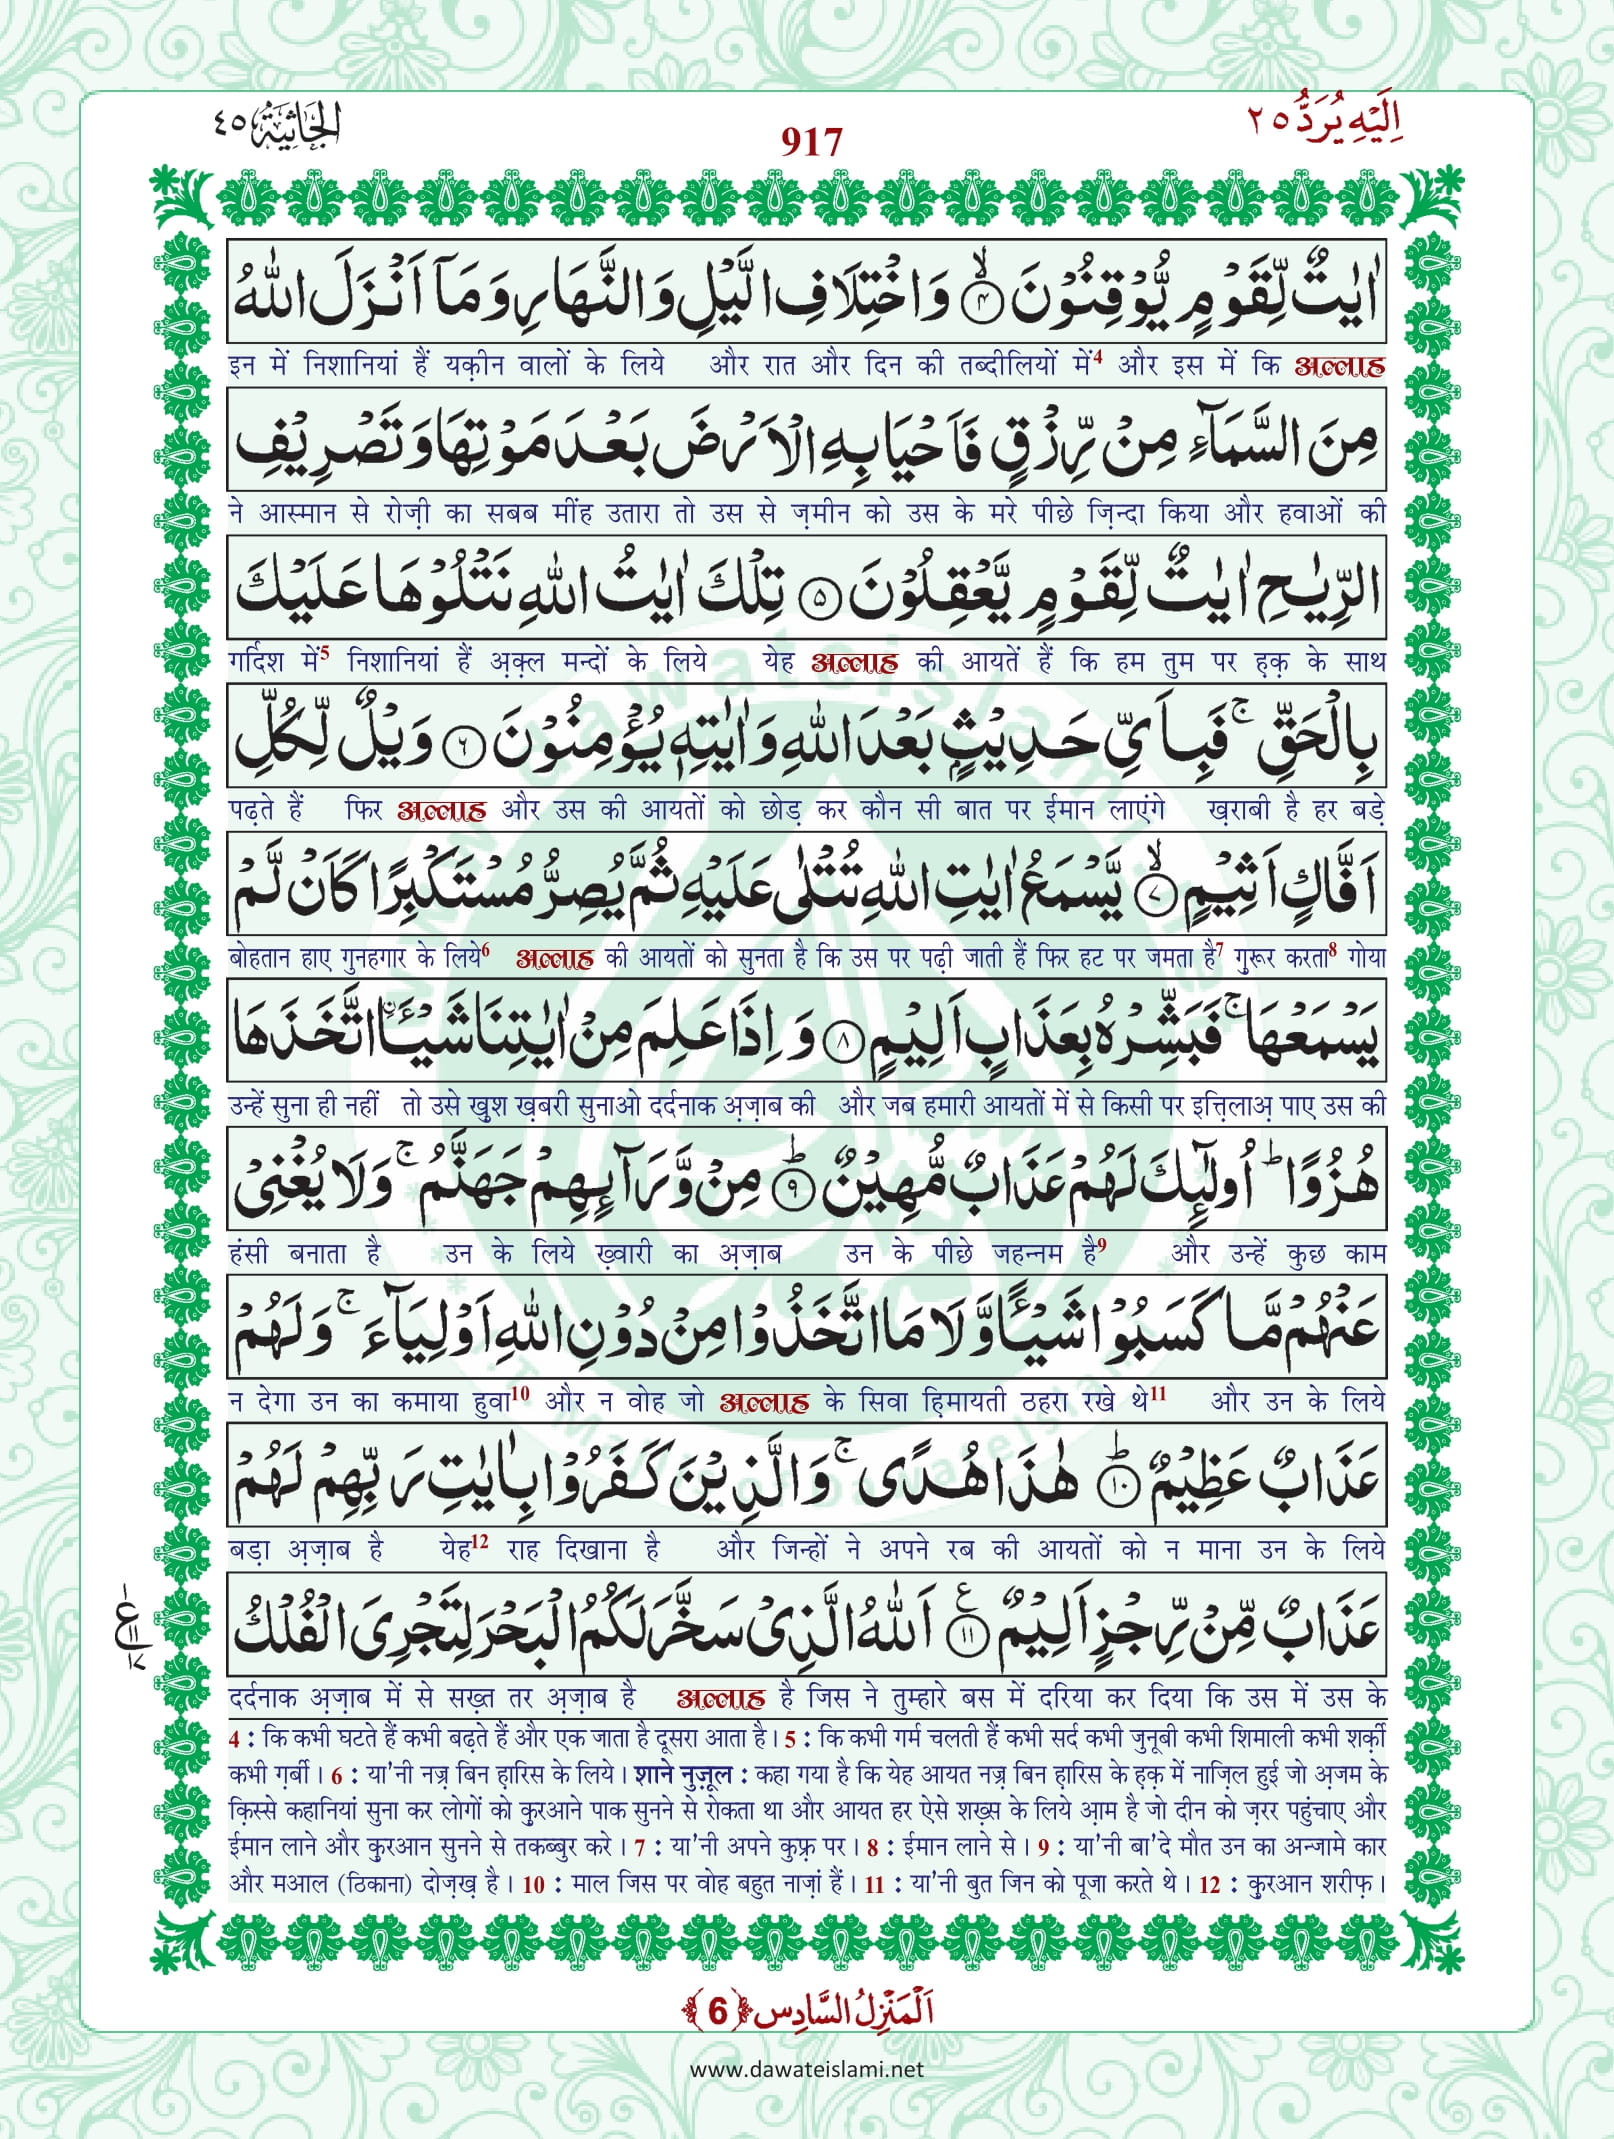 اِلَیْهِ یُرَدُّ ٢٥
917
الجَاثِیَة ٤٥
اٰیٰتٌ لِّقَوْمٍ یُّوْقِنُوْنَ ۙ﴿۴﴾ وَ اخْتِلَافِ الَّیْلِ وَ النَّهَارِ وَ مَاۤ اَنْزَلَ اللّٰهُ
इन में निशानियां हैं यक़ीन वालों के लिये और रात और दिन की तब्दीलियों में4 और इस में कि अल्लाह
مِنَ السَّمَآءِ مِنْ رِّزْقٍ فَاَحْیَا بِهِ الْاَرْضَ بَعْدَ مَوْتِهَا وَ تَصْرِیْفِ
ने आस्मान से रोज़ी का सबब मींह उतारा तो उस से ज़मीन को उस के मरे पीछे ज़िन्दा किया और हवाओं की
الرِّیٰحِ اٰیٰتٌ لِّقَوْمٍ یَّعْقِلُوْنَ ﴿۵﴾ تِلْكَ اٰیٰتُ اللّٰهِ نَتْلُوْهَا عَلَیْكَ
गर्दिश में5 निशानियां हैं अ़क़्ल मन्दों के लिये येह अल्लाह की आयतें हैं कि हम तुम पर ह़क़ के साथ
بِالْحَقِّ ۚ فَبِاَیِّ حَدِیْثٍۭ بَعْدَ اللّٰهِ وَ اٰیٰتِهٖ یُؤْمِنُوْنَ ﴿۶﴾ وَیْلٌ لِّكُلِّ
पढ़ते हैं फिर अल्लाह और उस की आयतों को छोड़ कर कौन सी बात पर ईमान लाएंगे ख़राबी है हर बड़े
اَفَّاكٍ اَثِیْمٍ ۙ﴿۷﴾ یَّسْمَعُ اٰیٰتِ اللّٰهِ تُتْلٰى عَلَیْهِ ثُمَّ یُصِرُّ مُسْتَكْبِرًا كَاَنْ لَّمْ
बोहतान हाए गुनहगार के लिये6 अल्लाह की आयतों को सुनता है कि उस पर पढ़ी जाती हैं फिर हट पर जमता है7 गुरूर करता8 गोया
یَسْمَعْهَا ۚ فَبَشِّرْهُ بِعَذَابٍ اَلِیْمٍ ﴿۸﴾ وَ اِذَا عَلِمَ مِنْ اٰیٰتِنَا شَیْـَٔاﰳ اتَّخَذَهَا
उन्हें सुना ही नहीं तो उसे खुश ख़बरी सुनाओ दर्दनाक अ़ज़ाब की और जब हमारी आयतों में से किसी पर इत्तिलाअ़ पाए उस की
هُزُوًا ؕ اُولٰٓىٕكَ لَهُمْ عَذَابٌ مُّهِیْنٌ ؕ﴿۹﴾ مِنْ وَّرَآىٕهِمْ جَهَنَّمُ ۚ وَ لَا یُغْنِیْ
हंसी बनाता है उन के लिये ख़्वारी का अ़ज़ाब उन के पीछे जहन्नम है9 और उन्हें कुछ काम
عَنْهُمْ مَّا كَسَبُوْا شَیْـًٔا وَّ لَا مَا اتَّخَذُوْا مِنْ دُوْنِ اللّٰهِ اَوْلِیَآءَ ۚ وَ لَهُمْ
न देगा उन का कमाया हुवा10 और न वोह जो अल्लाह के सिवा ह़िमायती ठहरा रखे थे11 और उन के लिये
عَذَابٌ عَظِیْمٌ ؕ﴿۱۰﴾ هٰذَا هُدًى ۚ وَ الَّذِیْنَ كَفَرُوْا بِاٰیٰتِ رَبِّهِمْ لَهُمْ
बड़ा अ़ज़ाब है येह12 राह दिखाना है और जिन्हों ने अपने रब की आयतों को न माना उन के लिये
عَذَابٌ مِّنْ رِّجْزٍ اَلِیْمٌ ﴿۱۱﴾ ع اَللّٰهُ الَّذِیْ سَخَّرَ لَكُمُ الْبَحْرَ لِتَجْرِیَ الْفُلْكُ
दर्दनाक अ़ज़ाब में से सख़्त तर अ़ज़ाब है अल्लाह है जिस ने तुम्हारे बस में दरिया कर दिया कि उस में उस के
4 : कि कभी घटते हैं कभी बढ़ते हैं और एक जाता है दूसरा आता है। 5 : कि कभी गर्म चलती हैं कभी सर्द कभी जुनूबी कभी शिमाली कभी शर्क़ी
कभी ग़र्बी। 6 : या'नी नज़्र बिन ह़ारिस के लिये। शाने नुज़ूल : कहा गया है कि येह आयत नज़्र बिन ह़ारिस के ह़क़ में नाज़िल हुई जो अ़जम के
क़िस्से कहानियां सुना कर लोगों को क़ुरआने पाक सुनने से रोकता था और आयत हर ऐसे शख़्स के लिये आ़म है जो दीन को ज़रर पहुंचाए और
ईमान लाने और क़ुरआन सुनने से तकब्बुर करे। 7 : या'नी अपने कुफ़्र पर। 8 : ईमान लाने से। 9 : या'नी बा'दे मौत उन का अन्जामे कार
और मआल (ठिकाना) दोज़ख़ है। 10 : माल जिस पर वोह बहुत नाज़ां हैं। 11 : या'नी बुत जिन को पूजा करते थे। 12 : क़ुरआन शरीफ़।
اَلْمَنْزِلُ السَّادِس ﴿6﴾
www.dawateislami.net